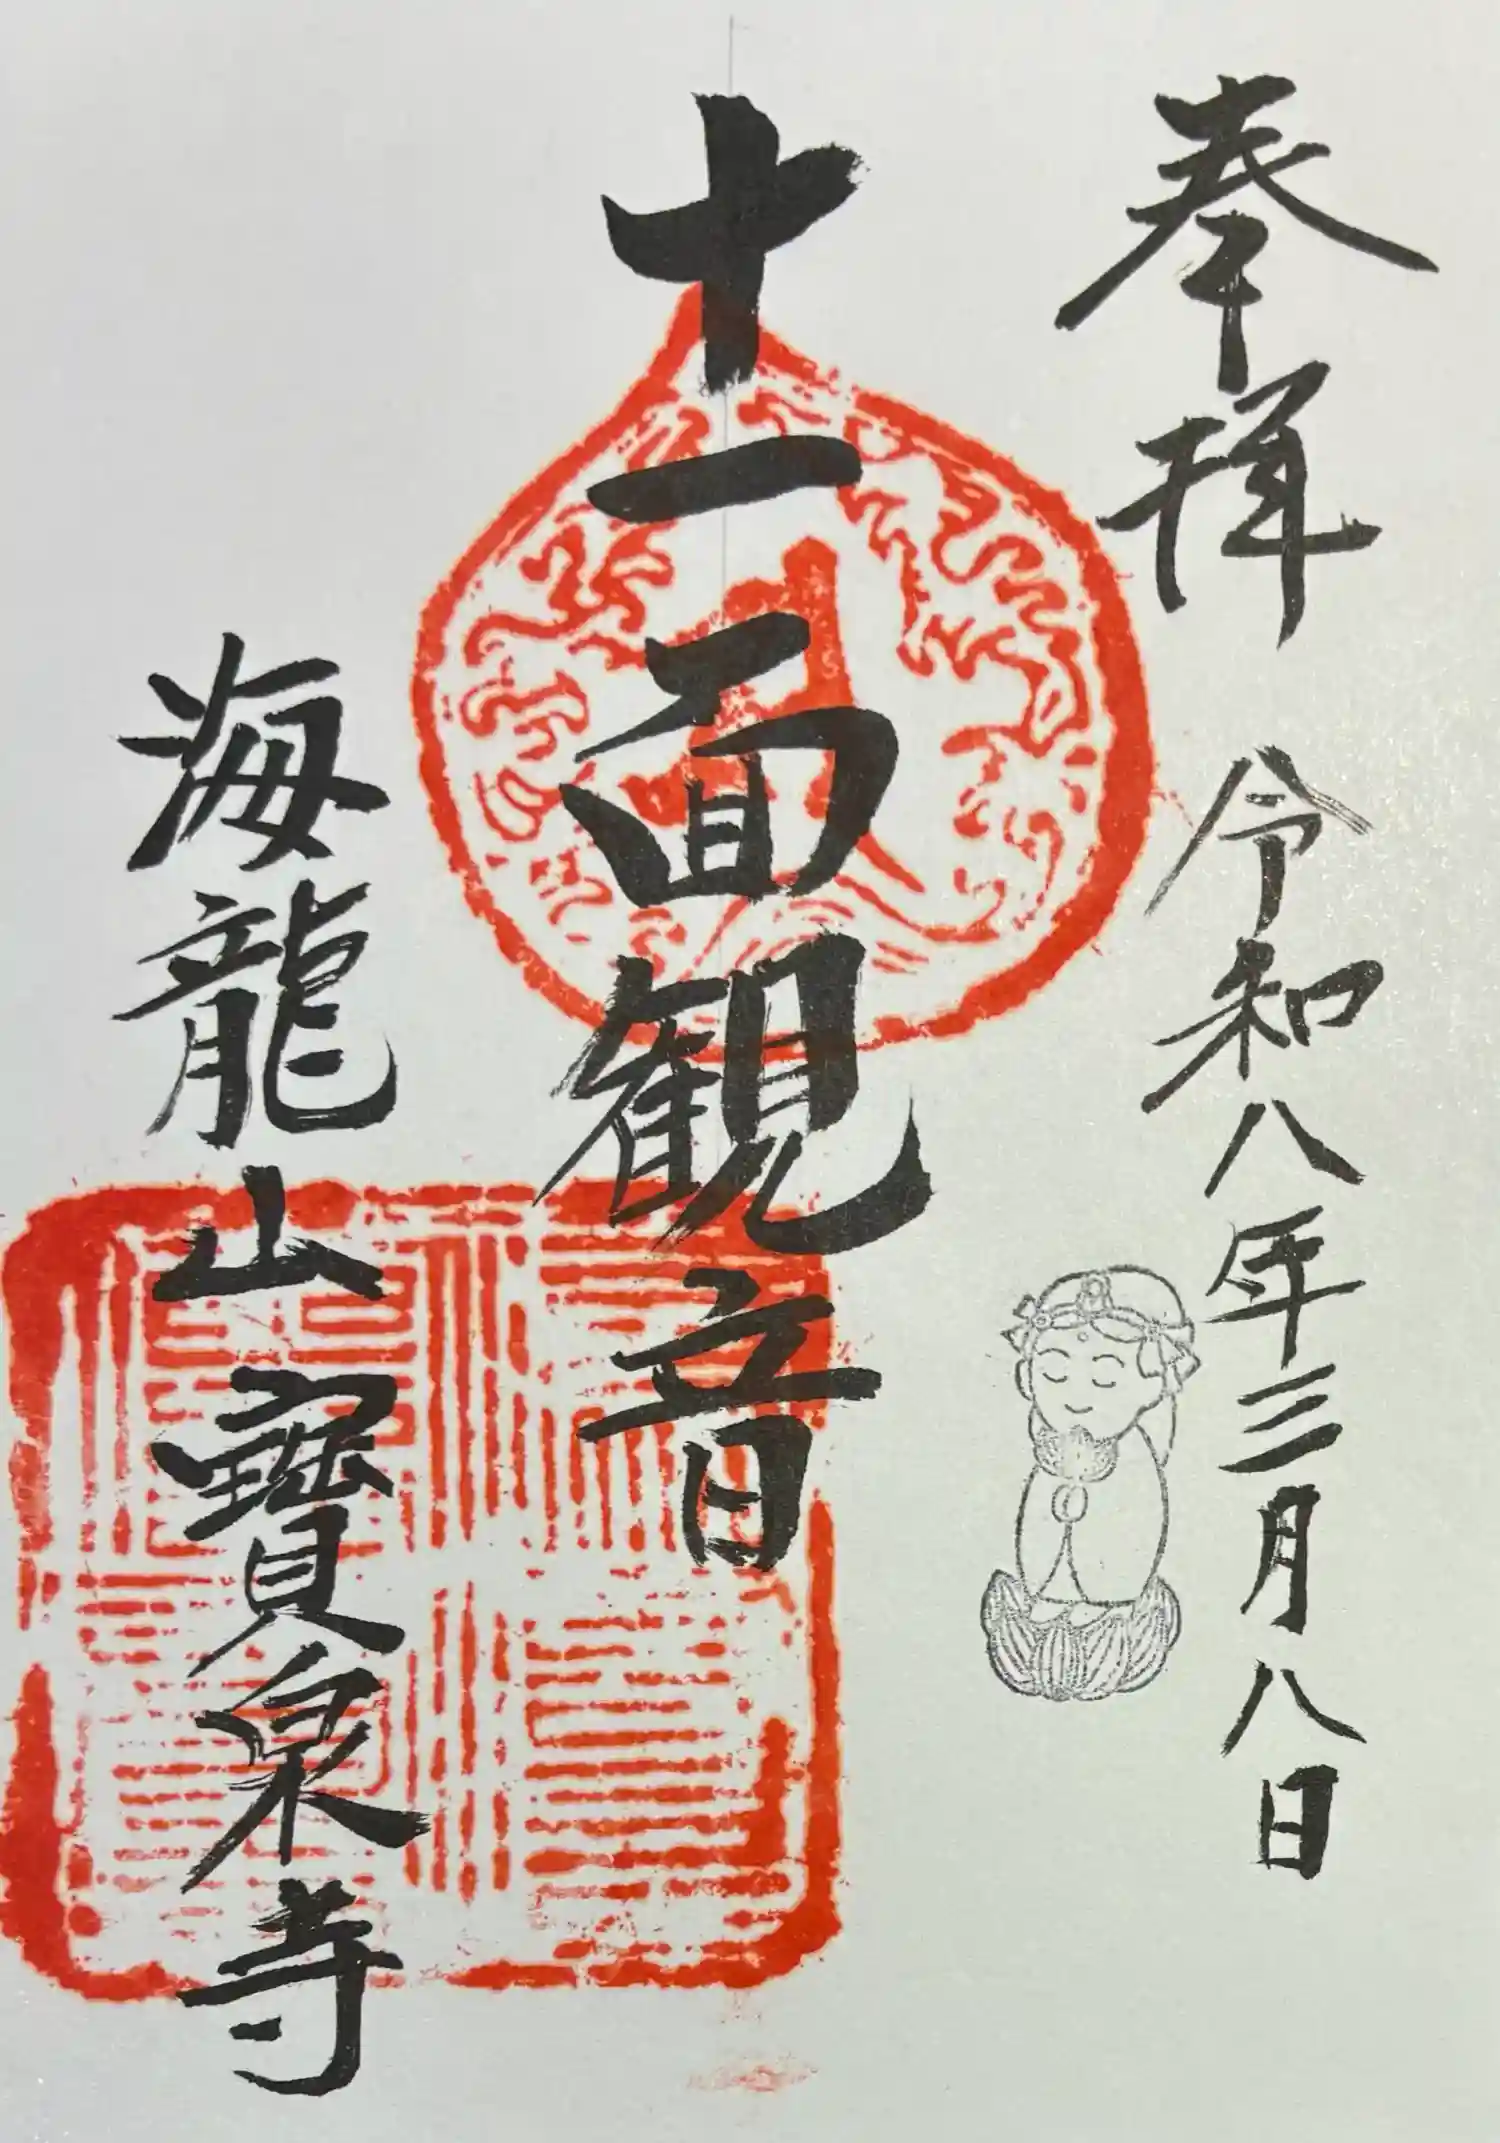 奉拝
令和八年三月八日
十一面観音
海龍山寶泉寺